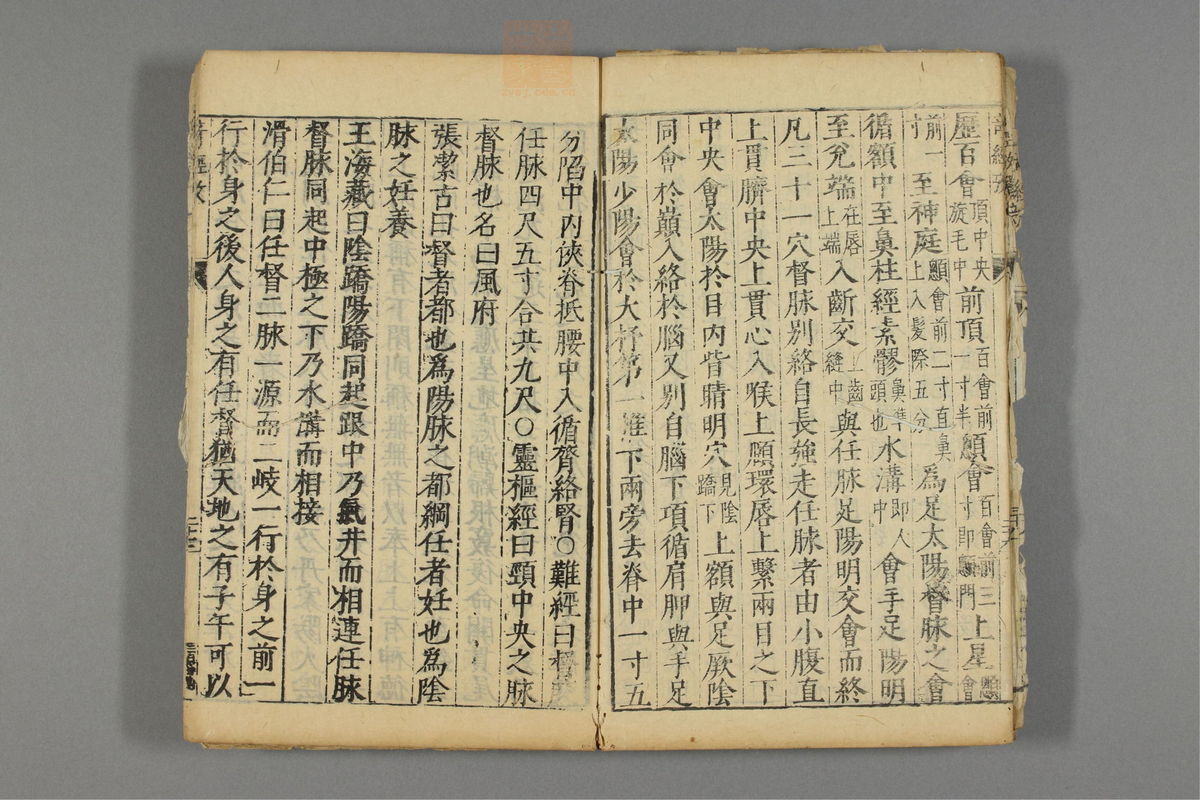 歷百會頂中央旋毛中前頂百會前一寸半顖會百會前三寸即顖門上星顖會
前一寸至神庭顖會前二寸直鼻上入髮際五分爲足太陽督脉之會
循額中至鼻柱經素髎鼻準頭也水溝即人中會手足陽明
至兊端在唇上端入齗交上齒縫中與任脉足陽明交會而終
凡三十一穴督脉別絡自長強走任脉者由小腹直
上貫臍中央上貫心入喉上頤環唇上繫兩目之下
中央會太陽於目內眥睛明穴見陰蹻下上額與足厥陰
同會於巔入絡於腦又別自腦下項循肩胛與手足
太陽少陽會於大杼第一椎下兩旁去脊中一寸五
分陷中內俠脊抵腰中入循膂絡腎○難經曰督
任脉四尺五寸合共九尺○靈樞經曰頸中央之脉
督脉也名曰風府
張潔古曰督者都也爲陽脉之都綱任者妊也爲陰
脉之妊養
王海藏曰陰蹻陽蹻同起跟中乃氣井而相連任脉
督脉同起中極之下乃水溝而相接
滑伯仁曰任督二脉一源而二岐一行於身之前一
行於身之後人身之有任督猶天地之有子午可以